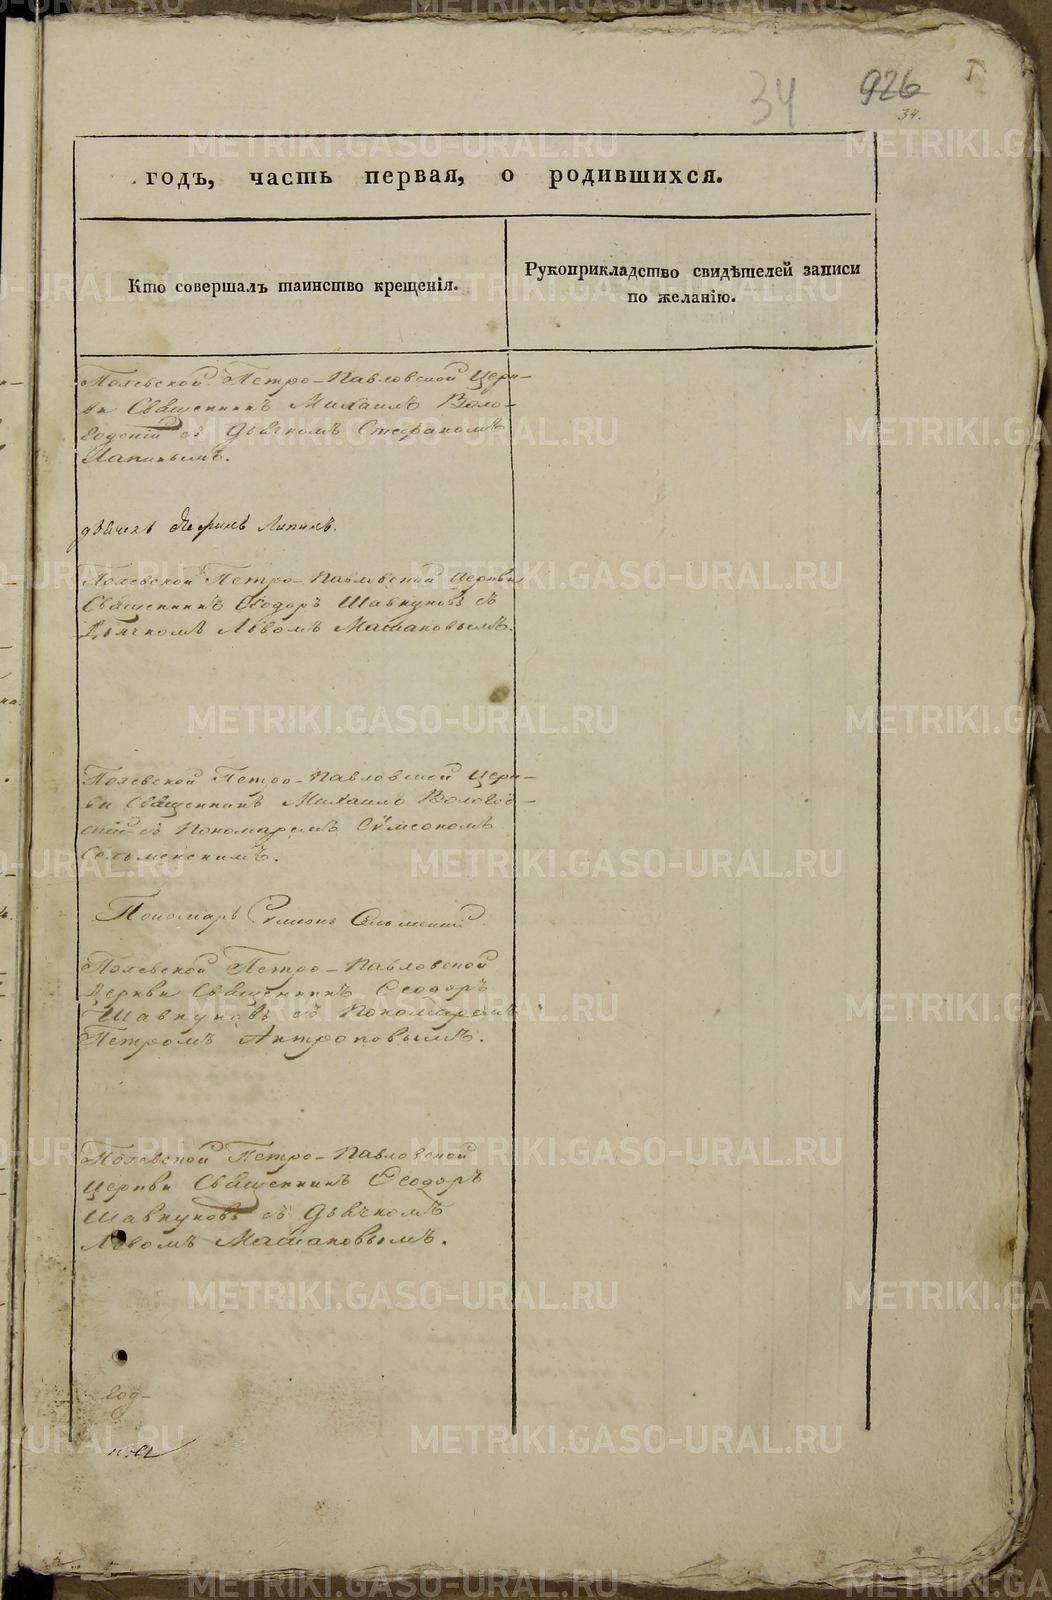 34 926
34.
годъ, часть первая, о родившихся.
Кто совершалъ таинство крещенія.
Рукоприкладство свидѣтелей записи
по желанію.
Полевской Петро-Павловской Церк-
ви Священникъ Михаилъ Воло-
годскій съ Дьячкомъ Стефаномъ
Лапинымъ.
дьячекъ Лапинъ.
Полевской Петро-Павловской Церкви
Священникъ Ѳеодоръ Шавкуновъ съ
Дьячкомъ Львомъ Машановымъ.
Полевской Петро-Павловской Церк-
ви Священникъ Михаилъ Волого-
скій съ Пономаремъ Сѵмеономъ
Сельменскимъ.
Пономарь Сѵмеонъ Сельменскій
Полевской Петро-Павловской
Церкви Священникъ Ѳеодоръ
Шавкуновъ съ Пономаремъ
Петромъ Антроповымъ.
Полевской Петро-Павловской
Церкви Священникъ Ѳеодоръ
Шавкуновъ съ Дьячкомъ
Львомъ Машановымъ.
Год-
METRIKI.GASO-URAL.RU